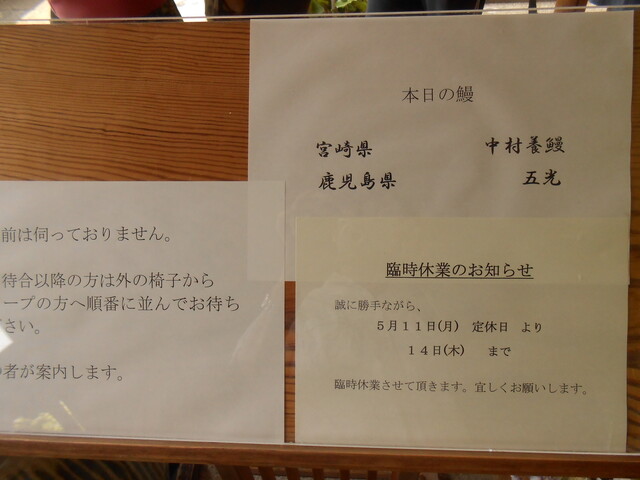 本日の鰻
宮崎県 中村養鰻
鹿児島県 五光
前は伺っておりません。
待合以降の方は外の椅子から
ープの方へ順番に並んでお待ち
さい。
者が案内します。
臨時休業のお知らせ
誠に勝手ながら、
5月11日(月) 定休日 より
14日(木) まで
臨時休業させて頂きます。宜しくお願いします。